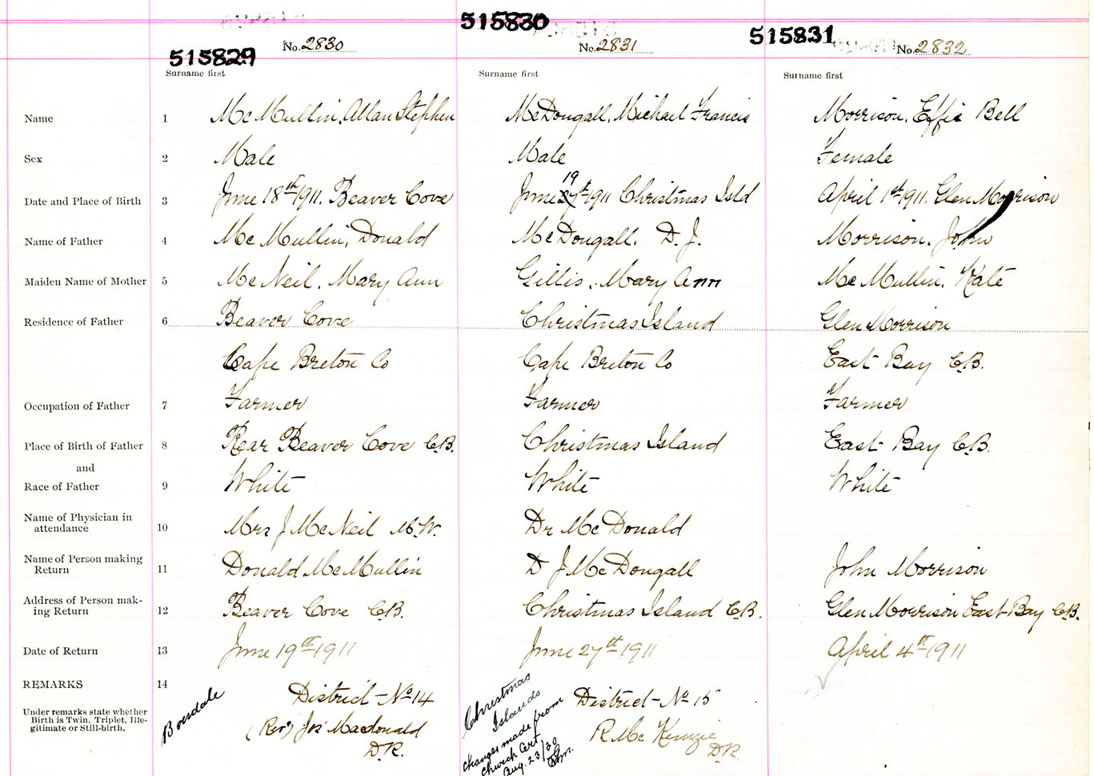 515829 No. 2830 515830 No. 2831 515831 No. 2832
Surname first Surname first Surname first
Name 1 McMullin, Allan Stephen McDougall, Michael Francis Morrison, Effie Bell
Sex 2 Male Male Female
Date and Place of Birth 3 June 18th 1911. Beaver Cove June 19 27th 1911 Christmas Isld April 1st 1911. Glen Morrison
Name of Father 4 McMullin, Donald McDougall, D. J. Morrison, John
Maiden Name of Mother 5 McNeil, Mary Ann Gillis, Mary Ann McMullin, Kate
Residence of Father 6 Beaver Cove Christmas Island Glen Morrison
Cape Breton Co Cape Breton Co East Bay C.B.
Occupation of Father 7 Farmer Farmer Farmer
Place of Birth of Father 8 Rear Beaver Cove C.B. Christmas Island East Bay C.B.
and
Race of Father 9 White White White
Name of Physician in
attendance 10 Mrs J McNeil M.W. Dr McDonald
Name of Person making
Return 11 Donald McMullin D J McDougall John Morrison
Address of Person mak-
ing Return 12 Beaver Cove C.B. Christmas Island C.B. Glen Morrison East Bay C.B.
Date of Return 13 June 19th 1911 June 27th 1911 April 4th 1911
REMARKS 14
Under remarks state whether
Birth is Twin, Triplet, Ille-
gitimate or Still-birth.
Boisdale
District - No 14
(Rev) Jos Macdonald
D.R.
Christmas
Islands
changes made from
Church Cert
Aug. 23/30
District - No 15
R McKenzie
D.R.